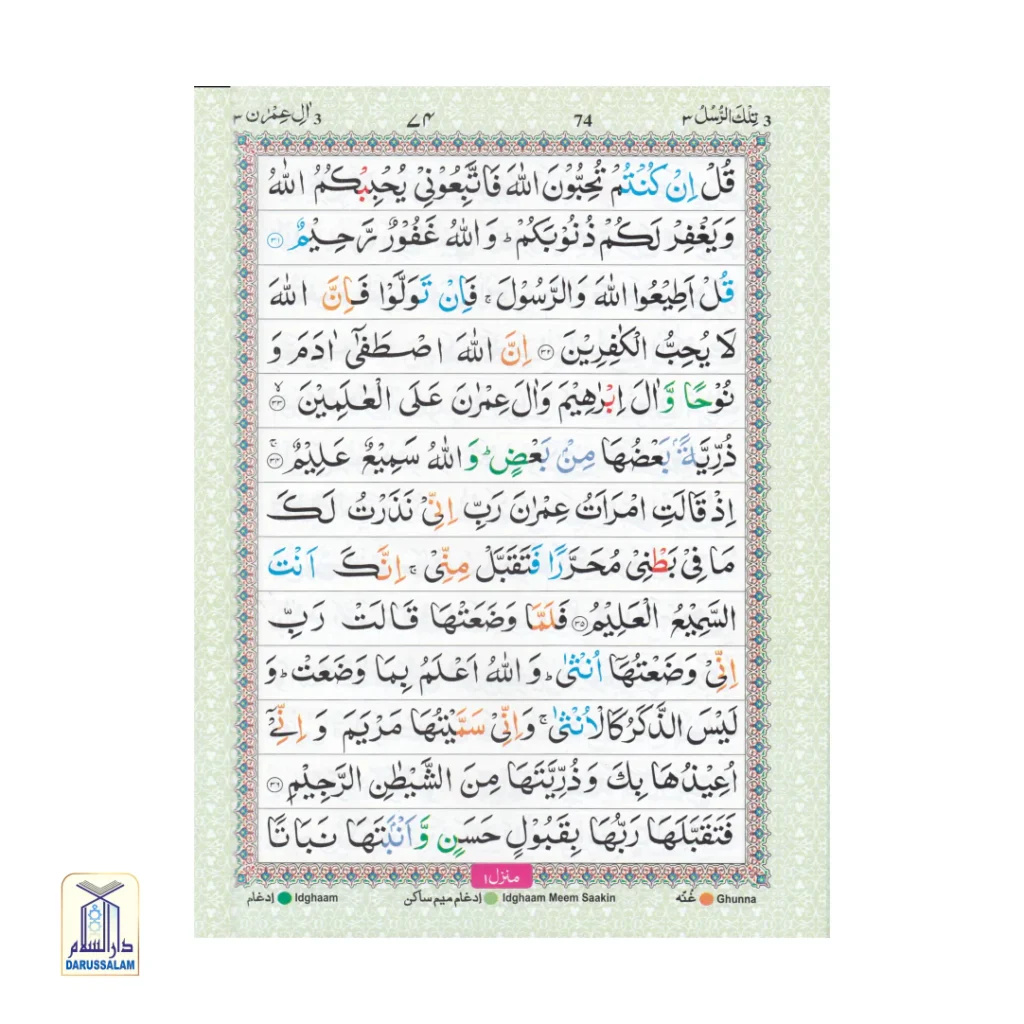 3 تِلْكَ الرُّسُلُ ٣ 74 ٧٤ 3 اٰلِ عِمْرٰن ٣
قُلْ اِنْ كُنْتُمْ تُحِبُّوْنَ اللّٰهَ فَاتَّبِعُوْنِيْ يُحْبِبْكُمُ اللّٰهُ
وَيَغْفِرْ لَكُمْ ذُنُوْبَكُمْ ؕ وَاللّٰهُ غَفُوْرٌ رَّحِيْمٌ ۝٣١
قُلْ اَطِيْعُوا اللّٰهَ وَالرَّسُوْلَ ۚ فَاِنْ تَوَلَّوْا فَاِنَّ اللّٰهَ
لَا يُحِبُّ الْكٰفِرِيْنَ ۝٣٢ اِنَّ اللّٰهَ اصْطَفٰۤى اٰدَمَ وَ
نُوْحًا وَّاٰلَ اِبْرٰهِيْمَ وَاٰلَ عِمْرٰنَ عَلَى الْعٰلَمِيْنَ ۝٣٣ ۙ
ذُرِّيَّةًۢ بَعْضُهَا مِنْۢ بَعْضٍ ؕ وَاللّٰهُ سَمِيْعٌ عَلِيْمٌ ۝٣٤ ۚ
اِذْ قَالَتِ امْرَاَتُ عِمْرٰنَ رَبِّ اِنِّيْ نَذَرْتُ لَكَ
مَا فِيْ بَطْنِيْ مُحَرَّرًا فَتَقَبَّلْ مِنِّيْ ۚ اِنَّكَ اَنْتَ
السَّمِيْعُ الْعَلِيْمُ ۝٣٥ فَلَمَّا وَضَعَتْهَا قَالَتْ رَبِّ
اِنِّيْ وَضَعْتُهَاۤ اُنْثٰى ؕ وَاللّٰهُ اَعْلَمُ بِمَا وَضَعَتْ ؕ وَ
لَيْسَ الذَّكَرُ كَالْاُنْثٰى ۚ وَاِنِّيْ سَمَّيْتُهَا مَرْيَمَ وَ اِنِّيْۤ
اُعِيْذُهَا بِكَ وَذُرِّيَّتَهَا مِنَ الشَّيْطٰنِ الرَّجِيْمِ ۝٣٦
فَتَقَبَّلَهَا رَبُّهَا بِقَبُوْلٍ حَسَنٍ وَّاَنْۢبَتَهَا نَبَاتًا
منزل ١
Ghunna غُنّه Idghaam Meem Saakin ادغام ميم ساكن Idghaam ادغام
دار السلام
DARUSSALAM